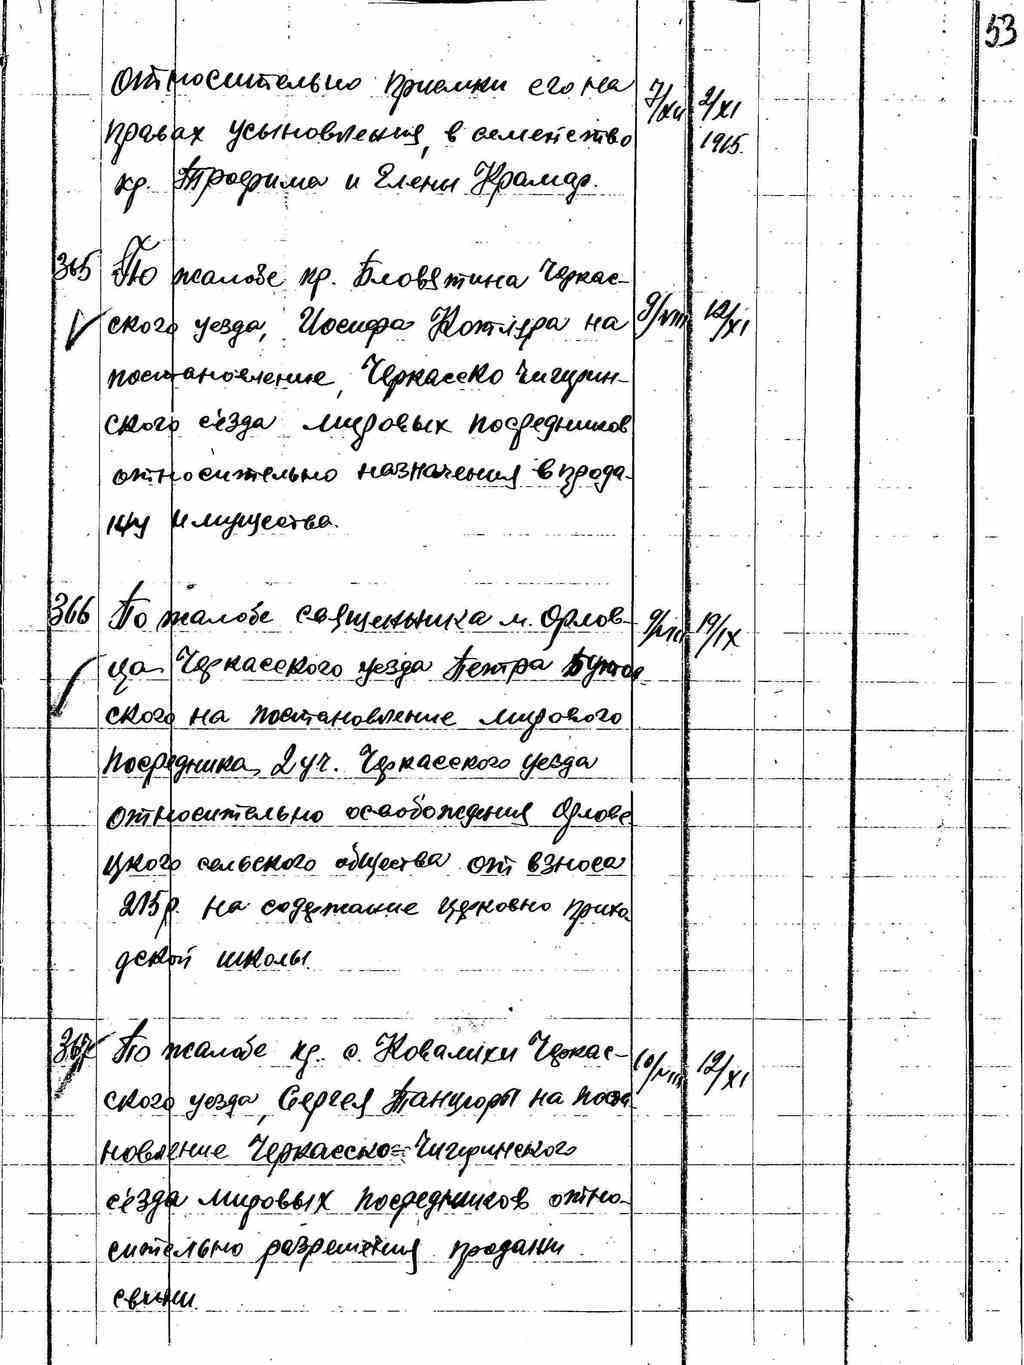 53
относительно приемки его на 7/XII 2/XI
правах усыновления, в семейство 1915.
кр. Трофима и Елены Крамар.
365 По жалобе кр. Бловятина Черкас-
ского уезда, Иосифа Котляра на 9/VIII 12/XI
постановление, Черкасско Чигирин-
ского сезда мировых посредников
относительно назначения в прода-
жу имущества.
366 По жалобе священника м. Орлов- 9/VIII 19/IX
ца Черкасского уезда Петра
ского на постановление мирового
посредника 2 уч. Черкасского уезда
относительно освобождения Орлове
цкого сельского общества от взноса
215 р. на содержание церковно прихо
дской школы.
367 По жалобе кр. с. Ковалихи Черкас- 10/VIII 12/XI
ского уезда, Сергея Панчоры на поста
новление Черкасско=Чигиринского
сезда мировых посредников отно-
сительно разрешения продажи
свиньи.